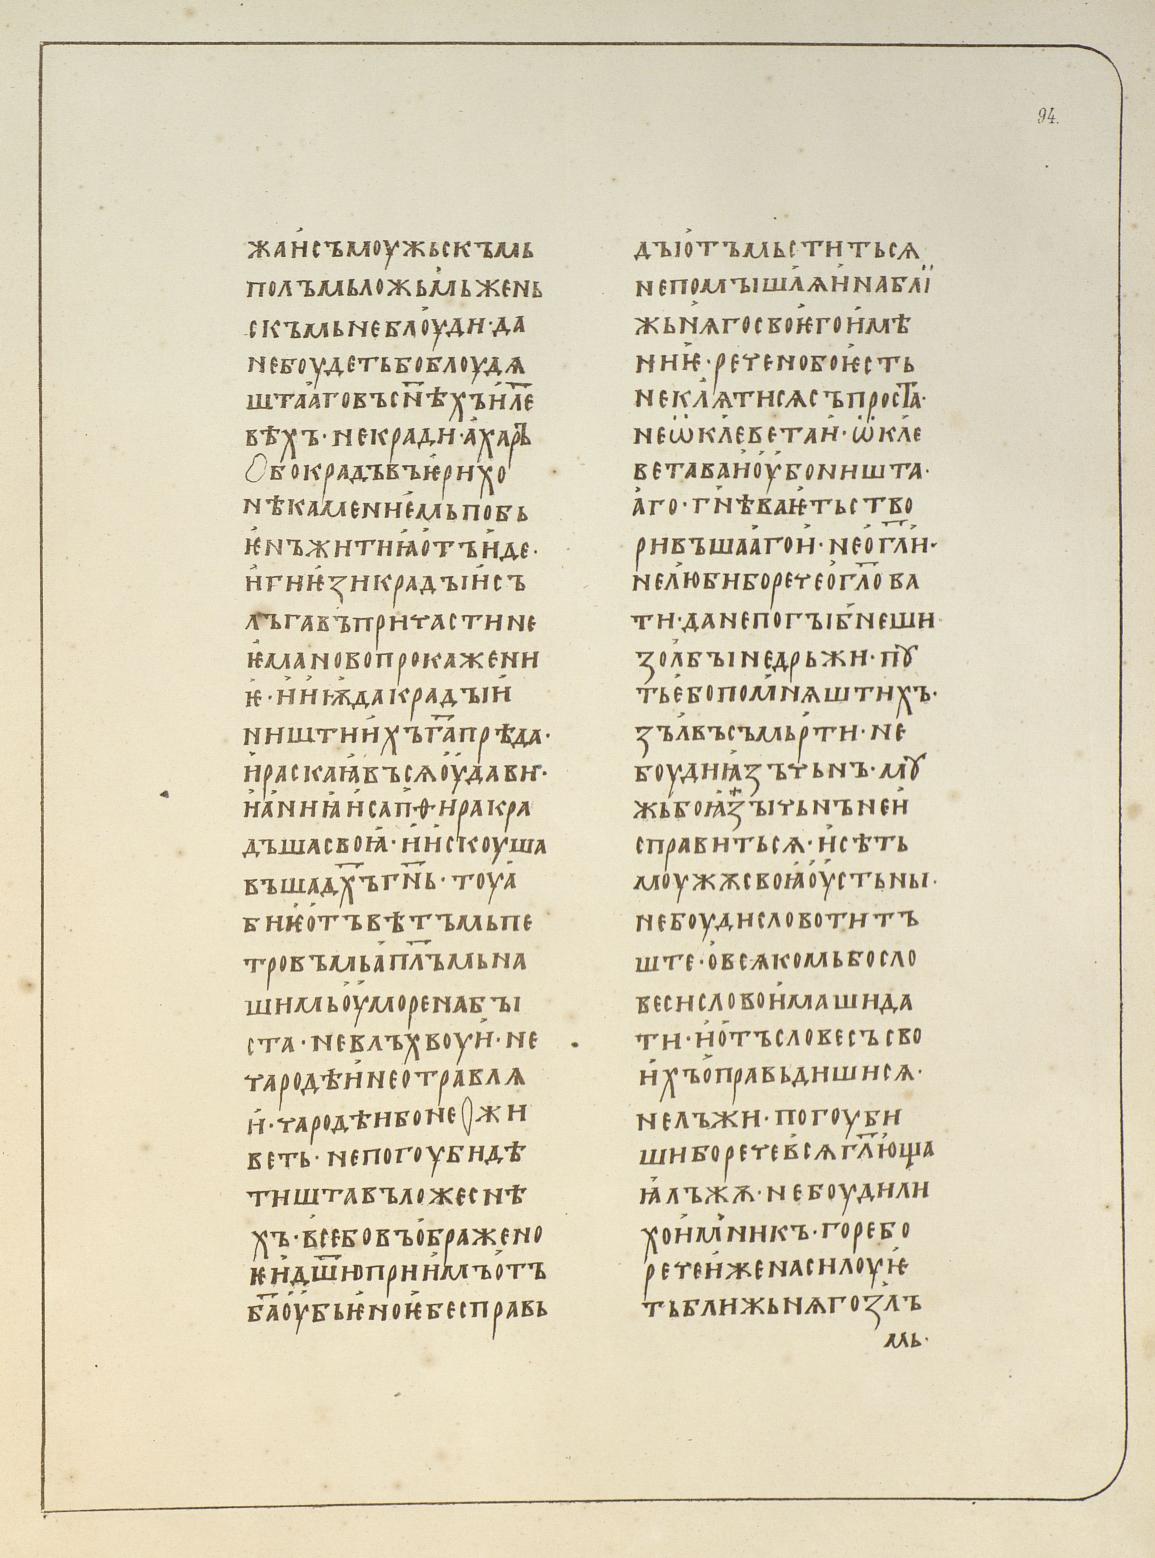 94.
жаи҆съмоужьскъмь
полъмьложьмьжень
скъмьнеблоуди·да
небоудетьбоблоудѧ
штааговъсн҃ѣхъил҃е
вѣхъ·некради·ахарь
обокрадъвъѥрихо
нѣкамениемьпобь
ѥнъжитиꙗотъиде·
игиѥзикрадыисъ
лъгавъпричастине
ѥмановопрокажени
ѥ·ииѭдакрадыи
ништиихъга҃прѣда·
ираскаꙗвъсѧоудави·
иананиꙗисапфиракра
дъшасвоꙗ·иискоуша
въшадх҃ъгн҃ь·тоуа
биѥотъвѣтъмьпе
тровъмьап҃лъмьна
шимьоуморенабы
ста·невлъхвоуи·не
чародѣинеотравлѧ
и·чародѣибонежи
веть·непогоубидѣ
тиштавъложеснѣ
хъ·всебовъображено
ѥидш҃юприимъотъ
ба҃оубьѥноѥбесправь
дыотъмьститьсѧ
непомышлѧинаблї
жьнѧгосвоѥгоимѣ
ниѥ·реченобоѥсть
неклѧтисѧсъпроста·
неѡклеветаи·ѡкле
ветаваиоубоништа·
аго·гнѣваѥтьство
ривъшаагои·неогл҃и·
нелюбиборечеогл҃ова
ти·данепогыбнеши
золбынедрьжи·пꙋ
тьебопомнѧштихъ·
зълвъсъмьрти·не
боудиꙗзъчьнъ·мꙋ
жьбоꙗзычьнънеи
справитьсѧ·исѣть
моужѫсвоꙗоустьны·
небоудисловотитъ
ште·овсѧкомьбосло
весисловоимашида
ти·иотъсловесъсво
ихъоправьдишисѧ·
нелъжи·погоуби
шиборечевсѧгл҃юща
ꙗлъжѫ·небоудили
хоимникъ·горебо
речеиженасилоуѥ
тьближьнѧгозл҄ъ
мь·